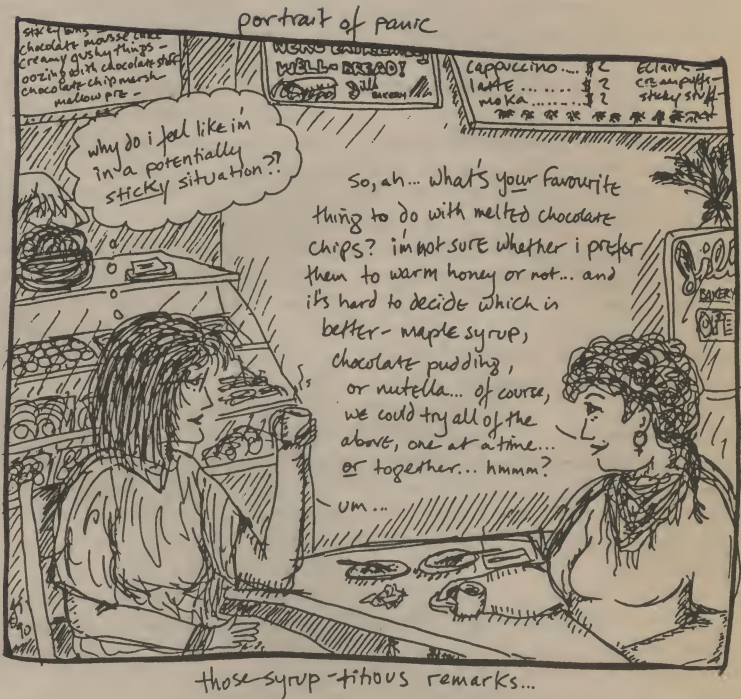 portrait of panic
sticky buns
chocolate mousse cake
creamy gushy things -
oozing with chocolate stuff
chocolate chip marsh-
mallow pie -
WELL-BREAD!
BAKERY
cappuccino.... $2
latte ........ $2
moka ....... $2
Eclairs -
creampuffs -
sticky stuff -
why do i feel like i'm
in a potentially
sticky situation??
So, ah... what's your favourite
thing to do with melted chocolate
chips? i'm not sure whether i prefer
them to warm honey or not... and
it's hard to decide which is
better - maple syrup,
chocolate pudding,
or nutella... of course,
we could try all of the
above, one at a time...
or together... hmmm?
um...
BAKERY
OPE
those syrup-titious remarks...